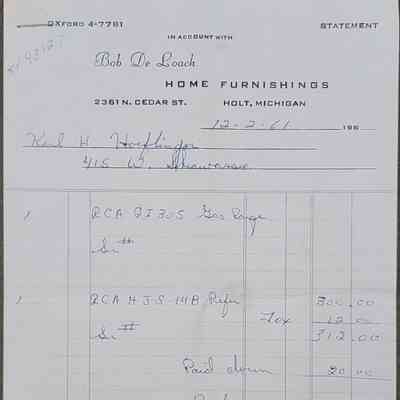 OXFORD 4-7781 STATEMENT
IN ACCOUNT WITH
Bob De Loach
HOME FURNISHINGS
2361 N. CEDAR ST. HOLT, MICHIGAN
12-2-61 196
Karl H Hoeflinger
415 W. Shiawassee
1 RCA QI30S Gas Range
Sr #
1 RCA HJS-14B Refr 300.00
Sr # Tax 12.00
312.00
Paid down 20.00